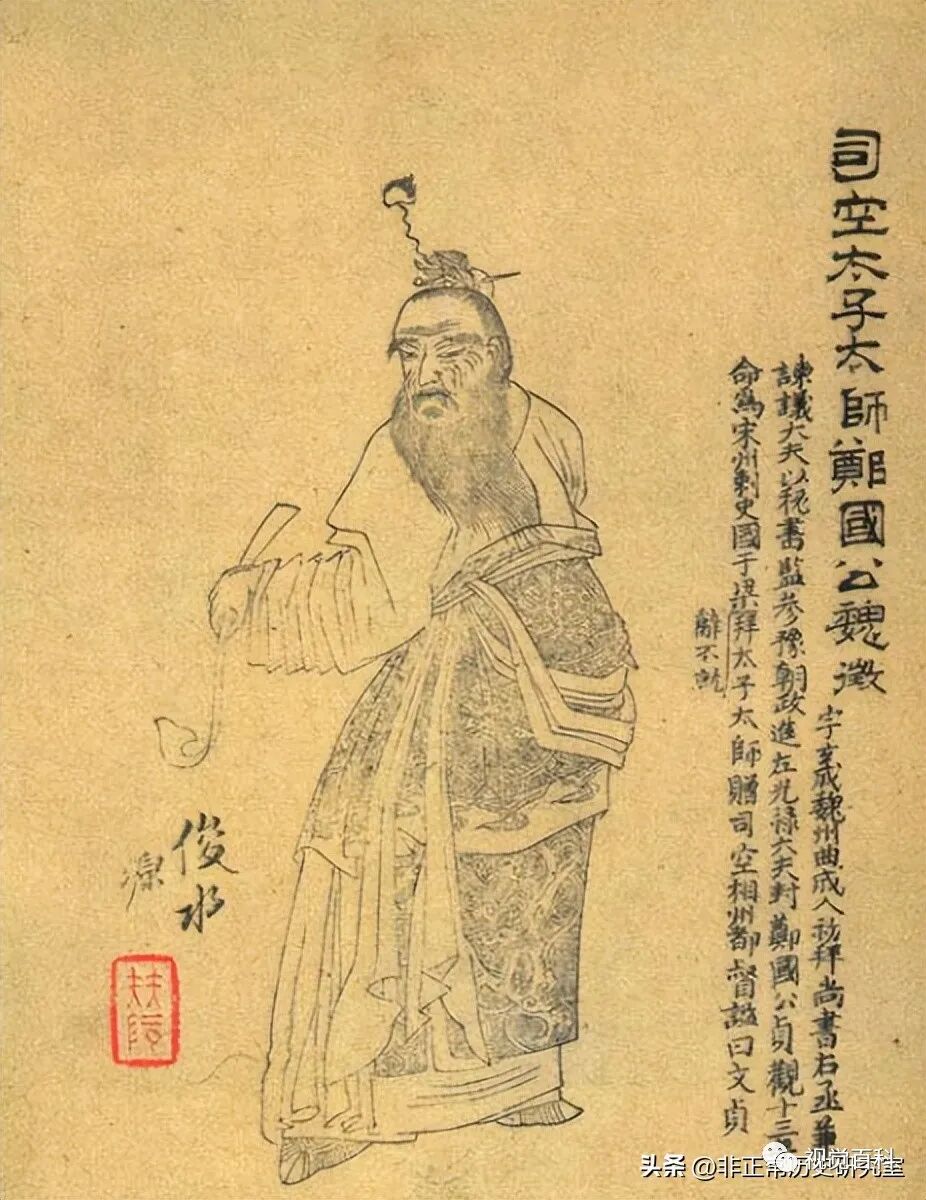 司空太子太師鄭國公魏徵
字玄成魏州曲成人初拜尚書右丞兼
諫議大夫以秘書監參豫朝政進左光祿大夫封鄭國公貞觀十三
命爲宋州刺史國于梁拜太子太師贈司空相州都督諡曰文貞
辭不就
俊水
源
头条 @非正常历史研究室
视觉百科